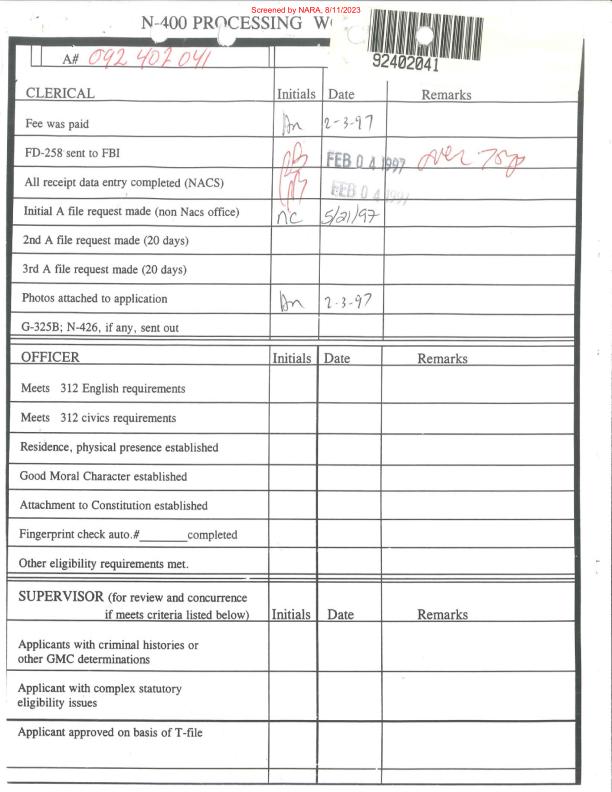 Screened by NARA, 8/11/2023
N-400 PROCESSING W
A# 092 402 041
92402041
CLERICAL Initials Date Remarks
Fee was paid 2-3-97
FD-258 sent to FBI FEB 04 1997 over 75yo
All receipt data entry completed (NACS) FEB 04 1997
Initial A file request made (non Nacs office) nc 5/21/97
2nd A file request made (20 days)
3rd A file request made (20 days)
Photos attached to application 2-3-97
G-325B; N-426, if any, sent out
OFFICER Initials Date Remarks
Meets 312 English requirements
Meets 312 civics requirements
Residence, physical presence established
Good Moral Character established
Attachment to Constitution established
Fingerprint check auto.#________completed
Other eligibility requirements met.
SUPERVISOR (for review and concurrence
if meets criteria listed below) Initials Date Remarks
Applicants with criminal histories or
other GMC determinations
Applicant with complex statutory
eligibility issues
Applicant approved on basis of T-file